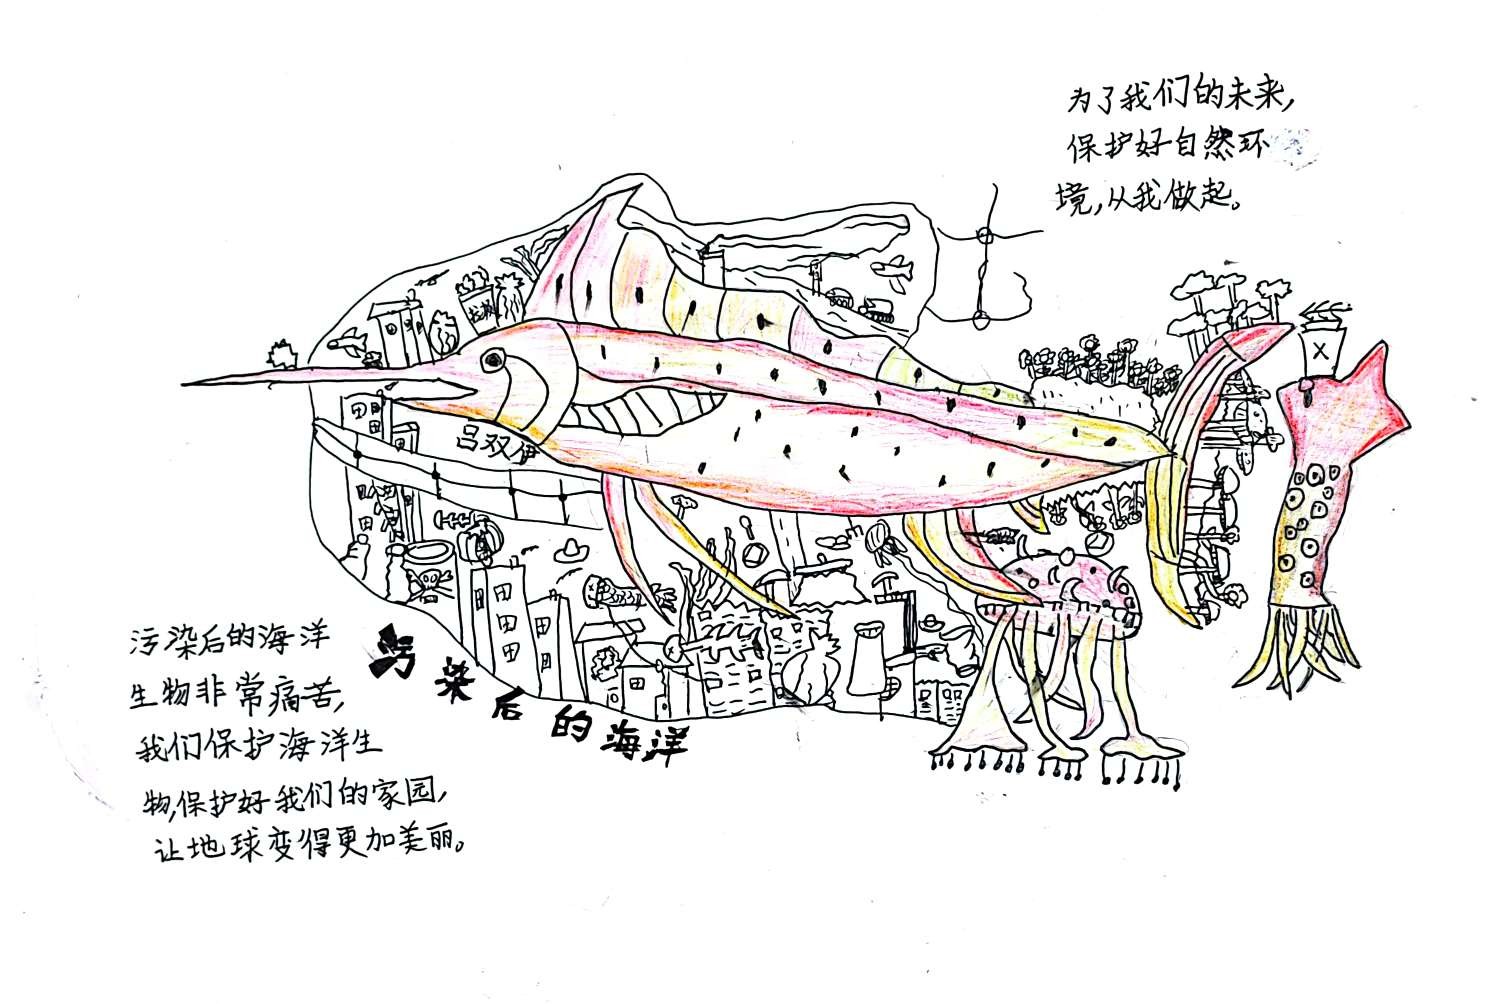 为了我们的未来,
保护好自然环
境,从我做起。
吕双伊
污染后的海洋
生物非常痛苦,
我们保护海洋生
物,保护好我们的家园,
让地球变得更加美丽。
污染后的海洋
X